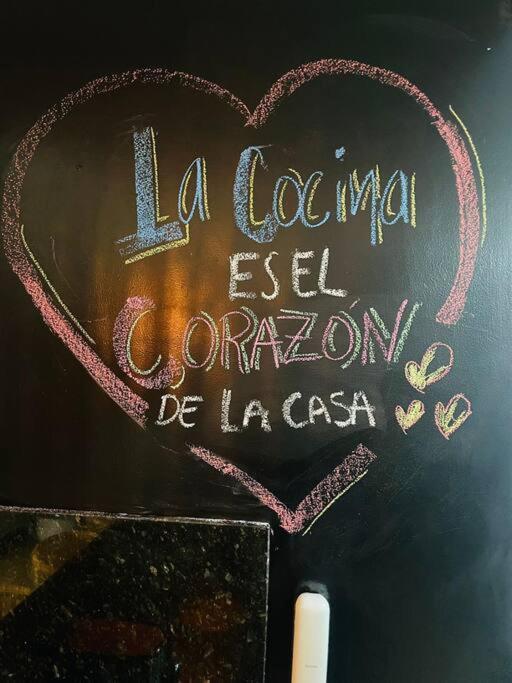 La Cocina
ES EL
CORAZÓN
DE LA CASA